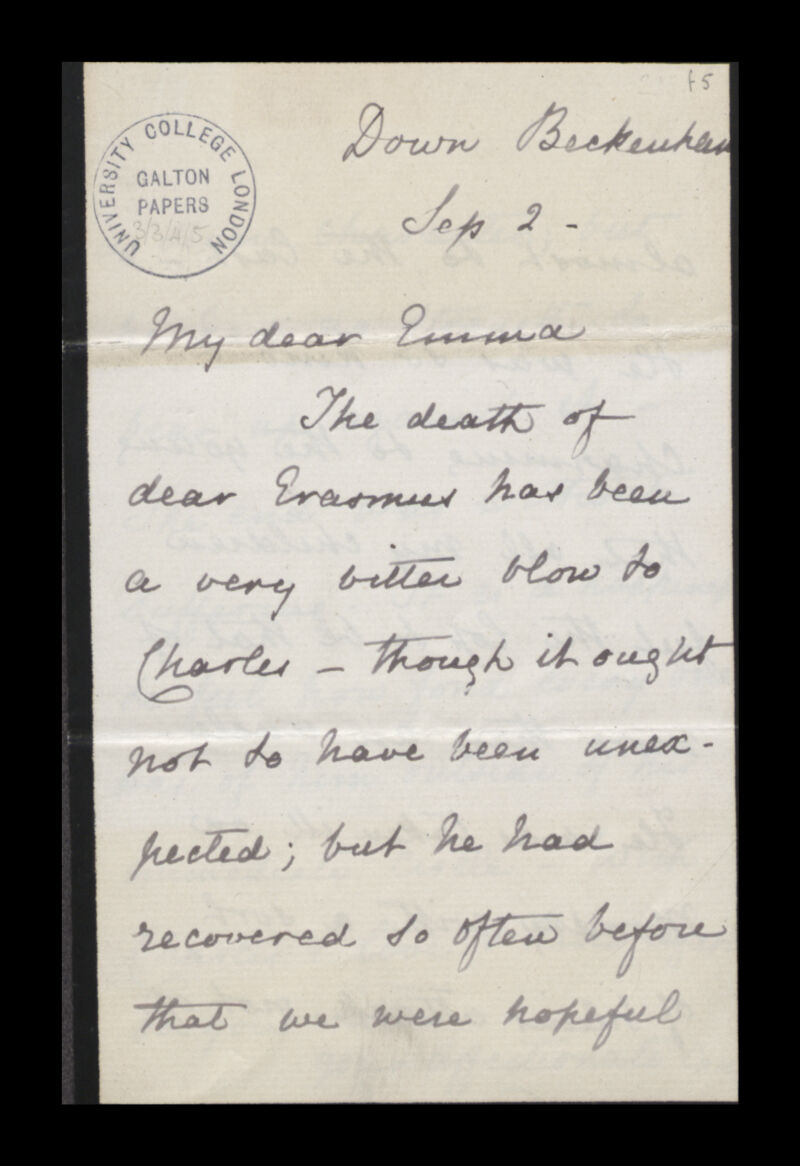 f5
UNIVERSITY COLLEGE LONDON
GALTON
PAPERS
3/3/4/5
Down Beckenham
Sep 2 -
My dear Emma
The death of
dear Erasmus has been
a very bitter blow to
Charles - though it ought
not to have been unex-
pected; but he had
recovered so often before
that we were hopeful